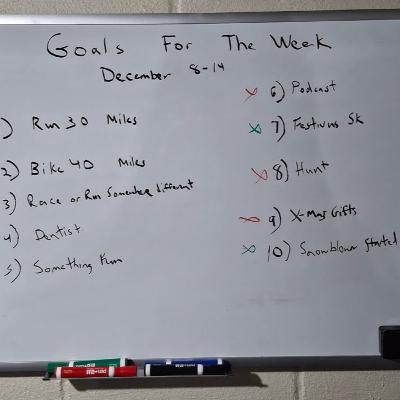 Goals For The Week
December 8-14
1) Run 30 Miles
2) Bike 40 Miles
3) Race or Run Somewhere different
4) Dentist
5) Something Fun
x 6) Podcast
x 7) Festivus 5k
x 8) Hunt
x 9) X-Mas Gifts
x 10) Snowblower Started